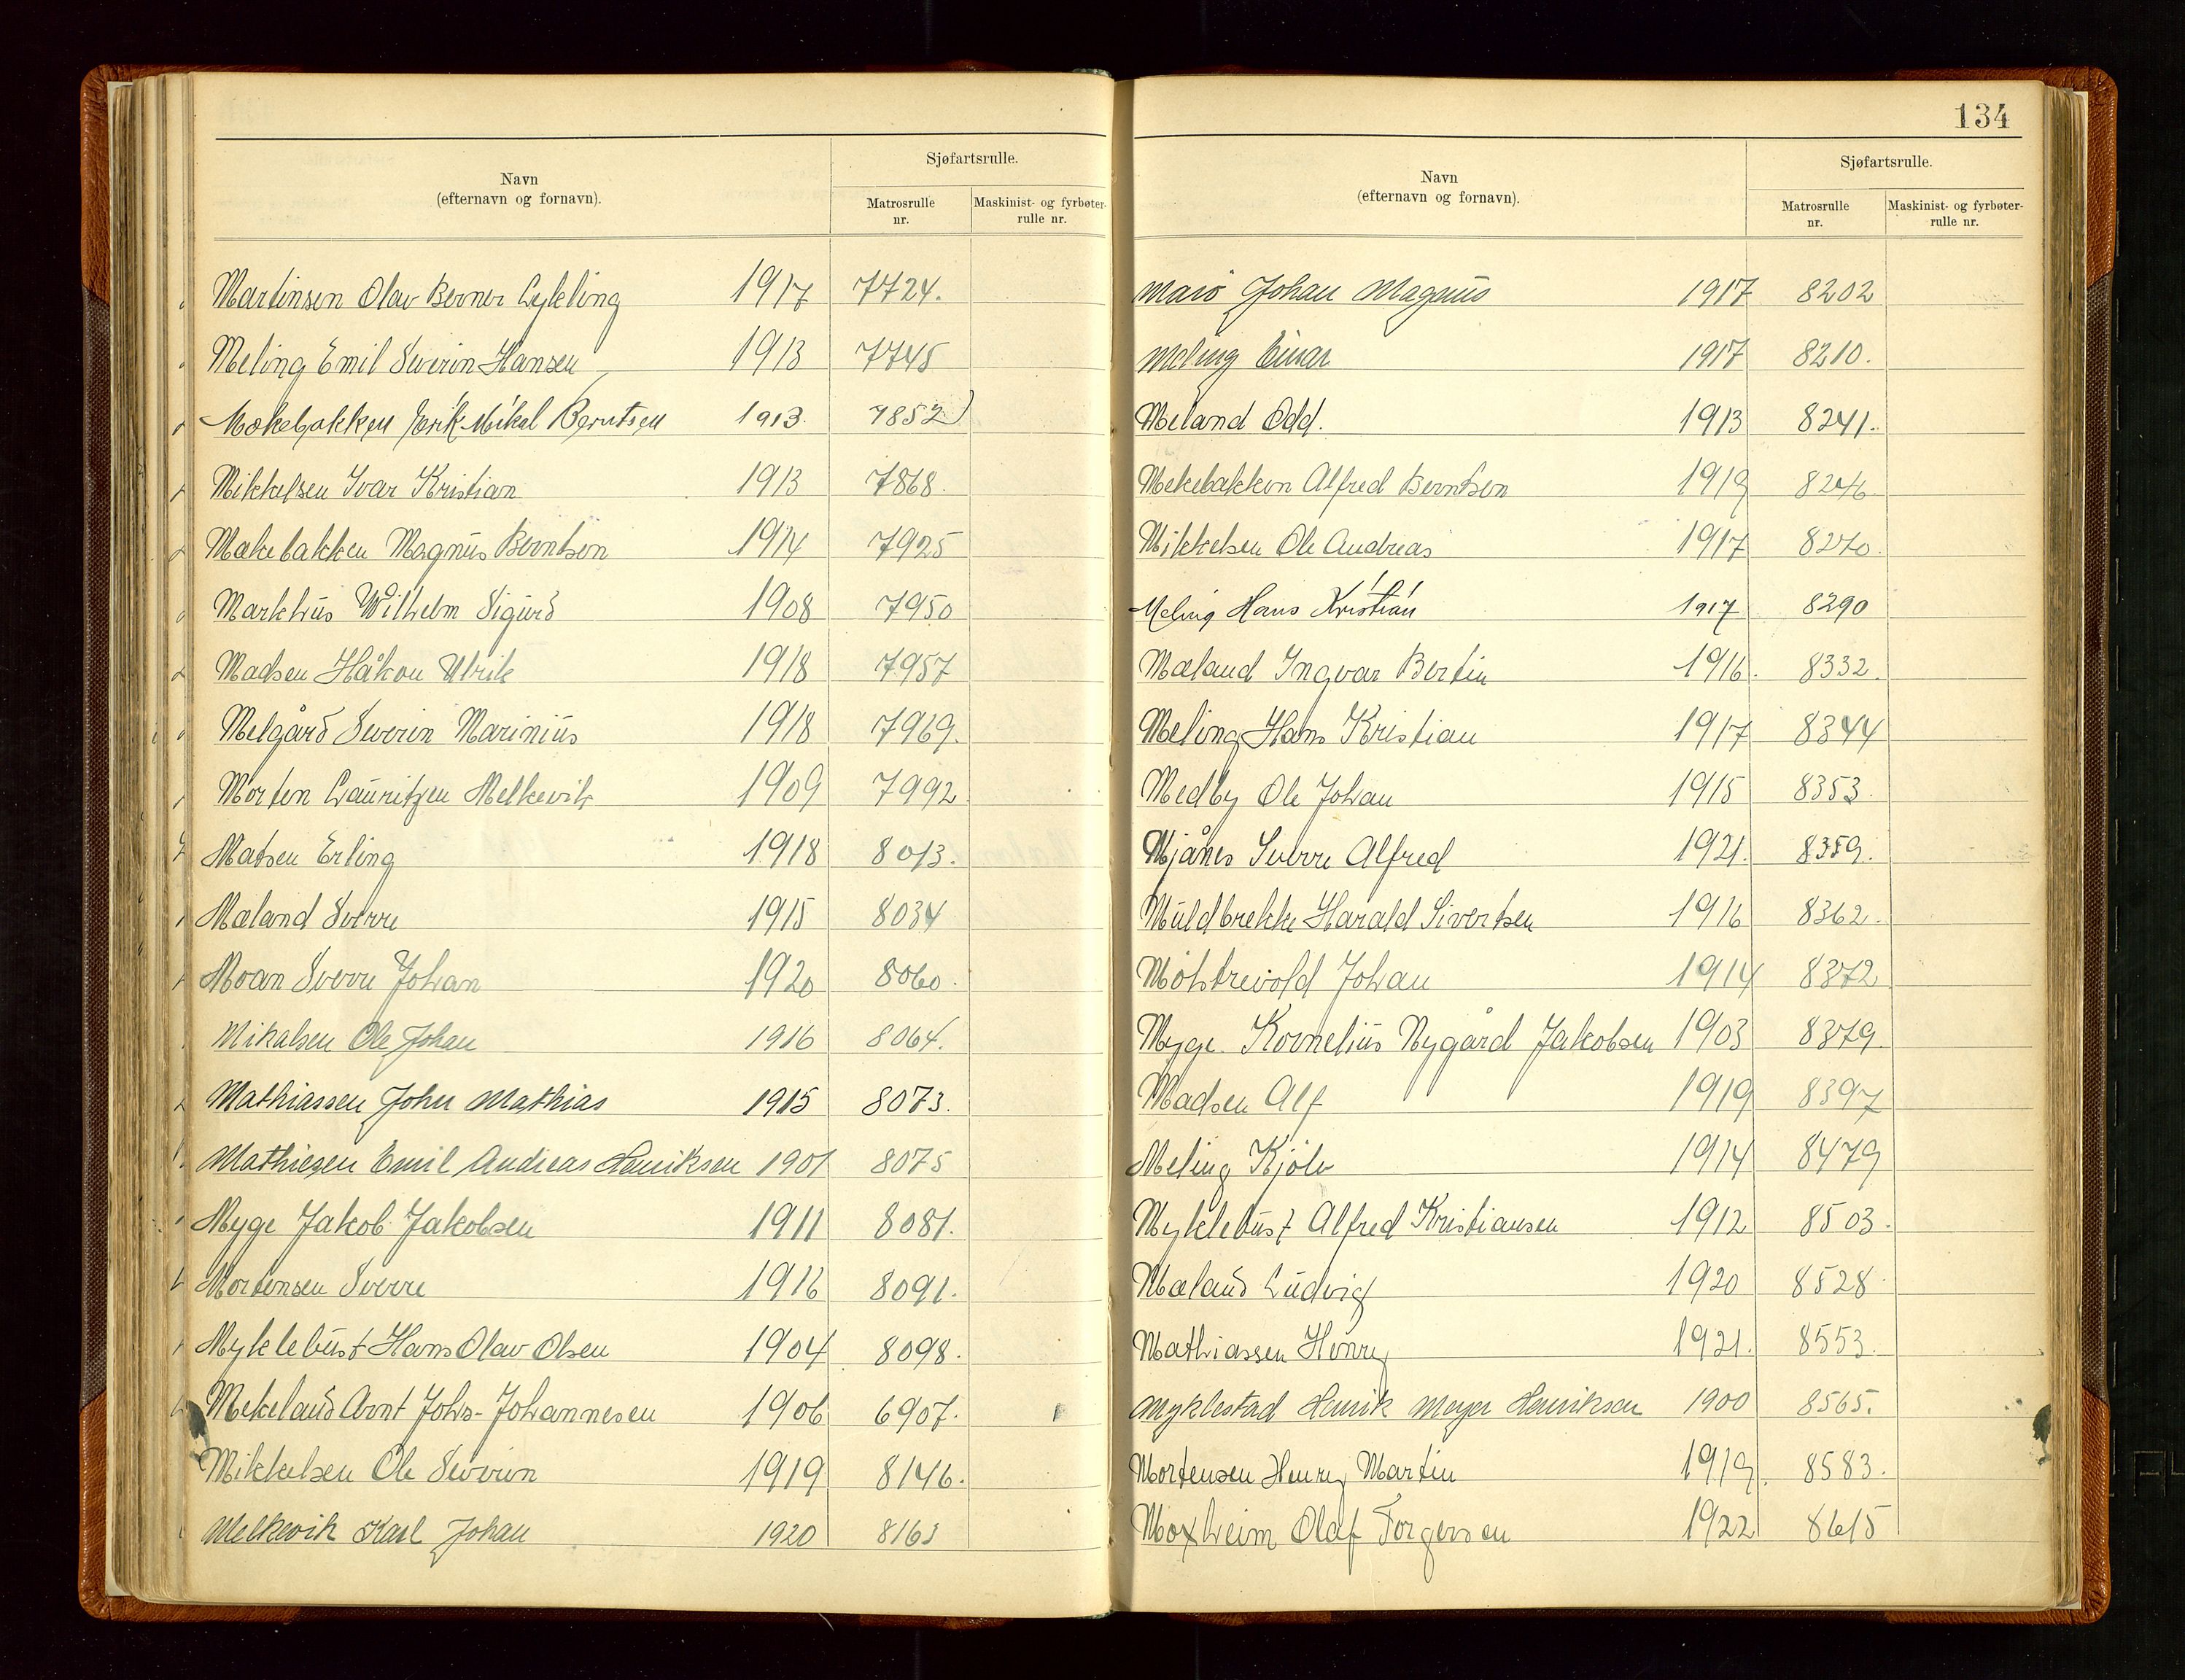 Navn
(efternavn og fornavn).
Sjøfartsrulle.
Matrosrulle nr.
Maskinist- og fyrbøter-rulle nr.
Martinsen Olav Berner Lykling 1917 7724.
Meling Emil Severin Hansen 1913 7745
Mokebakken Erik Mikal Berntsen 1913. 7852)
Mikkelsen Ivar Kristian 1913 7868.
Mækebakken Magnus Berntsen 1914 7925
Markhus Wilhelm Sigurd 1908 7950
Madsen Håkon Ulrik 1918 7957
Melgård Severin Marinius 1918 7969.
Morten Lauritzen Melkevik 1909 7992
Matsen Erling 1918 8013.
Mæland Sverre 1915 8034
Moan Sverre Johan 1920 8060.
Mikalsen Ole Johan 1916 8064.
Mathiassen John Mathias 1915 8073.
Mathiesen Emil Andreas Henriksen 1901 8075
Myge Jakob Jakobsen 1911 8081.
Mortensen Sverre 1916 8091.
Myklebust Hans Olav Olsen 1904 8098.
Mekeland Arnt Johs. Johannesen 1906 6907.
Mikkelsen Ole Severin 1919 8146.
Melkevik Karl Johan 1920 8163
134
Navn
(efternavn og fornavn).
Sjøfartsrulle.
Matrosrulle nr.
Maskinist- og fyrbøter-rulle nr.
Johan Magnus 1917 8202
Meling Einar 1917 8210.
Meland Odd. 1913 8241.
Mekebakken Alfred Berntsen 1919 8246.
Mikkelsen Ole Andreas 1917 8270.
Meling Hans Kristian 1917 8290
Mæland Ingvar Bertin 1916. 8332.
Meling Hans Kristian 1917 8344
Medby Ole Johan 1915 8353.
Mjånes Sverre Alfred 1921. 8359.
Muldbrekke Harald Sivertsen 1916 8362.
Johan 1914 8372
Myge Kornelius Nygård Jakobsen 1903 8379.
Madsen Alf 1919 8397
Meling Kjølv 1914 8479
Myklebust Alfred Kristiansen 1912 8503.
Mæland Ludvig 1920 8528.
Mathiassen Henry 1921. 8553.
Myklestad Henrik Meyer Henriksen 1900 8565.
Mortensen Henry Martin 1919. 8583.
Moxheim Olaf Torgersen 1922 8615